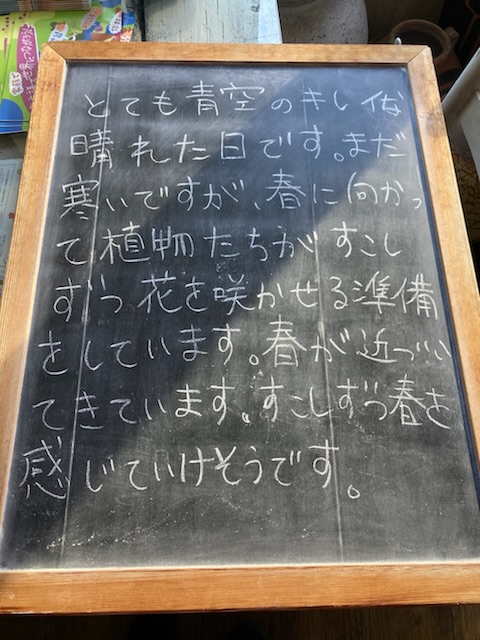 とても青空のキレイな
晴れた日です。まだ
寒いですが、春に向かっ
て植物たちがすこし
ずつ花を咲かせる準備
をしています。春が近づい
てきています。すこしずつ春を
感じていけそうです。